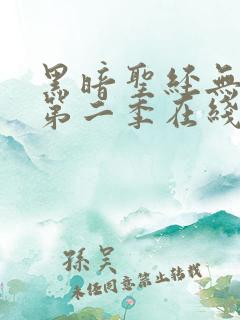 黑暗聖經無
第二季在綫
孫吴
未经同意禁止转载